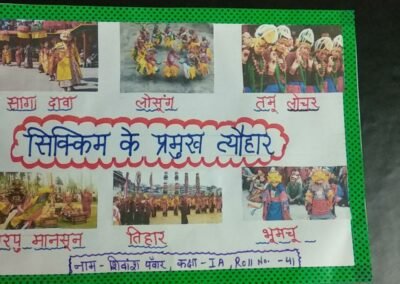 सागा दावा लोसूंग तमू लोचर
सिक्किम के प्रमुख त्यौहार
मानसून तिहार भूमचू
नाम - शिवांश पँवार, कक्षा - IA, Roll No. - 41